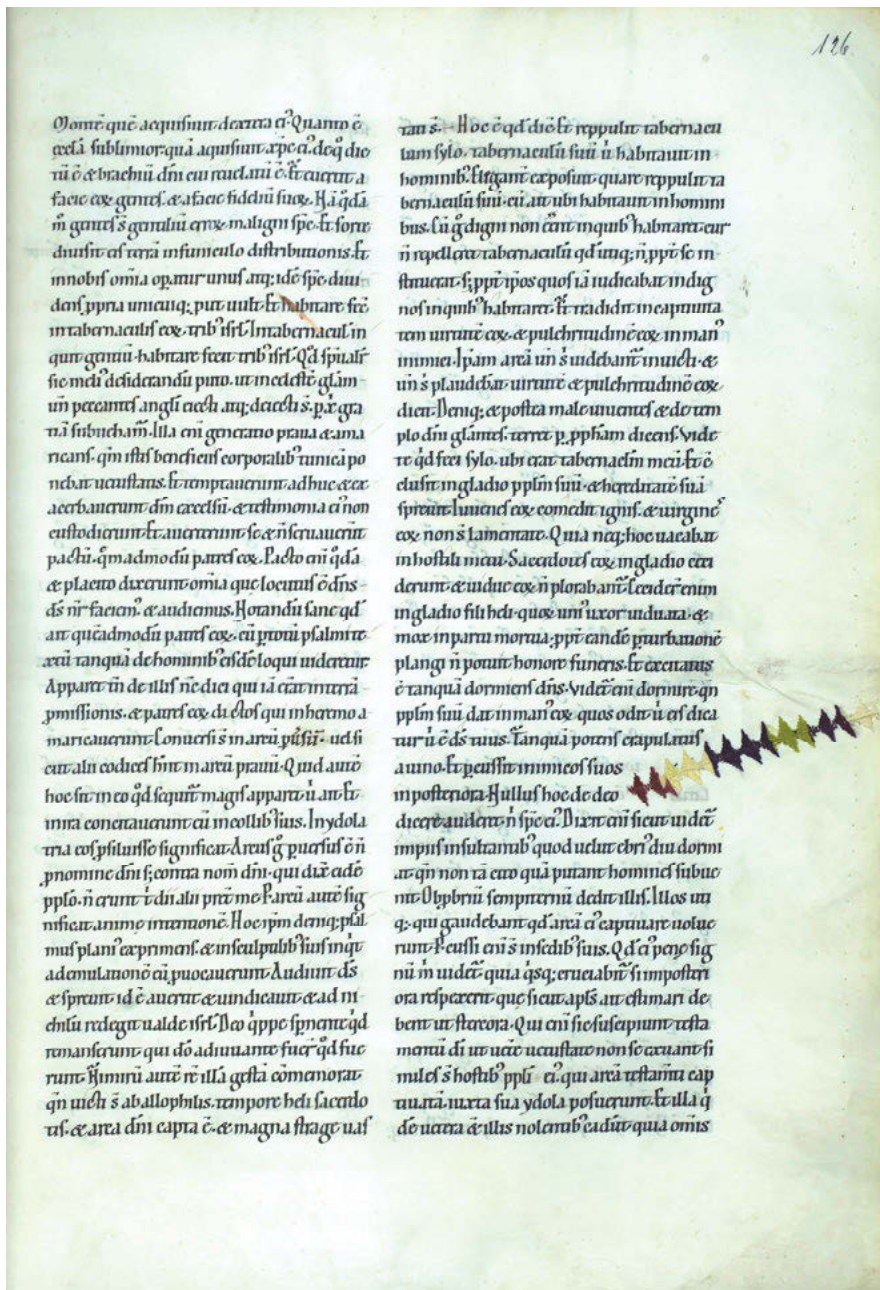 126
Montē quē acquisiuit dextera ei᾽ Quanto ē
excelsa sublimior quā aquisiuit xp̄c ei᾽ de q̊ dic
tū ē & brachiū dn̄i cui reuelatū ē. Et eiecit a
facie eoꝝ gentes. & a facie fideliū suoꝝ.
m̄ gentes s̄ gentiliū error maligni sp̄c. Et sorte
diuisit eis terrā in funiculo distributionis. Et
in nobis om̄ia operatur unus atq; idē sp̄c. diui
dens ꝓpria unicuiq; put uult. Et habitare fec̄
in tabernaculis eoꝝ. trib᾽ isrl̄. In tabernacul̄ in
quit gentiū habitare fecit trib᾽ isrl̄. Qd̄ sp̄ualit̄
sic meli᾽ desiderandū puto. ut in celestē gl̄am
un̄ peccantes angl̄i eiecti atq; deiecti s̄. p̱ xp̄i gra
tiā subueham̄. Illa eni generatio praua & ama
ricans. qm̄ istis beneficiis corporalib᾽ tunicā po
nebat uetustatis. Et temptauerunt adhuc & ex
acerbauerunt dm̄ excelsū. & testimonia ei᾽ non
custodierunt. Et auerterunt se & n̄ seruauerūt
pactū. qm̄admodū patres eoꝝ. Pacto eni q̊dā
& placito dixerunt. om̄ia que locutus ē dn̄s
ds̄ nr̄ faciem᾽. & audiemus. Notandū sane qd̄
ait quēadmodū patres eoꝝ. cū p̱ totū psalmi te
xtū tanquā de hominib᾽ eisdē loqui uideretur
Apparet tn̄ de illis nc̄ dici qui iā erāt in terrā
ꝓmissionis. & patres eoꝝ dictos qui in heremo a
maricauerunt. Conuersi s̄ in arcū uel si
cut alii codices hn̄t in arcū prauū. Quid autē
hoc sit in eo qd̄ sequit᾽ magis apparet ū ait. Et
in ira concitauerunt eū in collib᾽ suis. In ydola
tria eos ꝓsiluisse significat. Arcus g̊ ꝑuersus ē n̄
ꝓ nomine dn̄i s; contra nom̄ dn̄i. qui dix̄ eidē
pplo. n̄ erunt t̄ dii alii pret̄ me. P arcū autē sig
nificat anime intentionē. Hoc ipm̄ deniq; psal
mus plani᾽ exprimens. & in sculptilib᾽ suis inqt̄
ad emulationē eū ꝓuocauerunt. Audiuit ds̄
& spreuit id ē auertit & uindicauit & ad ni
chilū redegit ualde isrl̄. Deo qppe spnente qd̄
remanserunt qui dō adiuuante fuer̄ qd̄ fue
runt. Nimirū autē rē illā gestā cōmemorat.
qn̄ uicti s̄ ab allophilis. tempore heli sacerdo
tis. & arca dn̄i capta ē. & magna strage uas
tati s̄. Hoc ē qd̄ dic̄ Et reppulit tabernacu
lum sylo. tabernaculū suū ū habitauit in
hominib᾽. Eleganter exposuit. quare reppulit ta
bernaculū suū. cū ait ubi habitauit in homini
bus. Cū g̊ digni non eēnt in quib᾽ habitaret. cur
n̄ repelleret tabernaculū qd̄ utiq; n̄ ppt̄ se in
stituerat. s; ppt̄ ipsos quos iā iudicabat indig
nos in quib᾽ habitaret. Et tradidit in captiuita
tem uirtutē eoꝝ. & pulchritudinē eoꝝ in man᾽
inimici. Ipsam arcā un̄ s̄ uidebant᾽ inuicti. &
un̄ s̄ plaudebāt uirtutē & pulchritudinē eoꝝ
dicit. Deniq; & postea male uiuentes & de tem
plo dn̄i gl̄antes. terret p̱ ꝓpham dicens. Vide
te qd̄ feci sylo. ubi erat tabernacl̄m meū. Et cō
clusit in gladio pplm̄ suū. & hereditatē suā
spreuit. Iuuenes eoꝝ comedit ignis. & uirgine᾽
eoꝝ non s̄ lamentate. Quia neq; hoc uacabat
in hostili metu. Sacerdotes eoꝝ in gladio ceci
derunt. & uidue eoꝝ n̄ plorabant᾽. Cecider̄ enim
in gladio filii heli. quoꝝ uni᾽ uxor uiduata. &
mox in partu mortua; ppt̄ eandē ꝑturbationē
plangi n̄ potuit honore funeris. Et excitatus
ē tanquā dormiens dn̄s. Videt᾽ eni dormire qn̄
pplm̄ suū dat in man᾽ eoꝝ quos odit ū eis dica
tur ū ē ds̄ tuus. Tanquā potens crapulatus
a uino. Et ꝑcussit inimicos suos
in posteriora. Nullus hoc de deo
dicere auderet. n̄ sp̄c ei᾽. Dixit eni sicut uidet᾽
impiis insultantib᾽ quod uelut ebri᾽ diu dormi
at qn̄ non tā cito quā putant homines subue
nit. Obpbriū sempiternū dedit illis. Illos uti
q; qui gaudebant qd̄ arcā ei᾽ captiuare uolue
runt. Pcussi eni s̄ in sedib᾽ suis. Qd̄ ei᾽ pene sig
nū m̄ uidet᾽. quia qsq; cruciabit᾽ si in posteri
ora respexerit que sicut apl̄s ait estimari de
bent ut stercora. Qui eni sic suscipiunt testa
mentū di ut uetere uetustate non se exuant. si
miles s̄ hostib᾽ ppli ei᾽. qui arcā testam̄ti cap
tiuatā. iuxta sua ydola posuerunt. Et illa q̇
dē uetera & illis nolentib᾽ cadūt quia om̄is